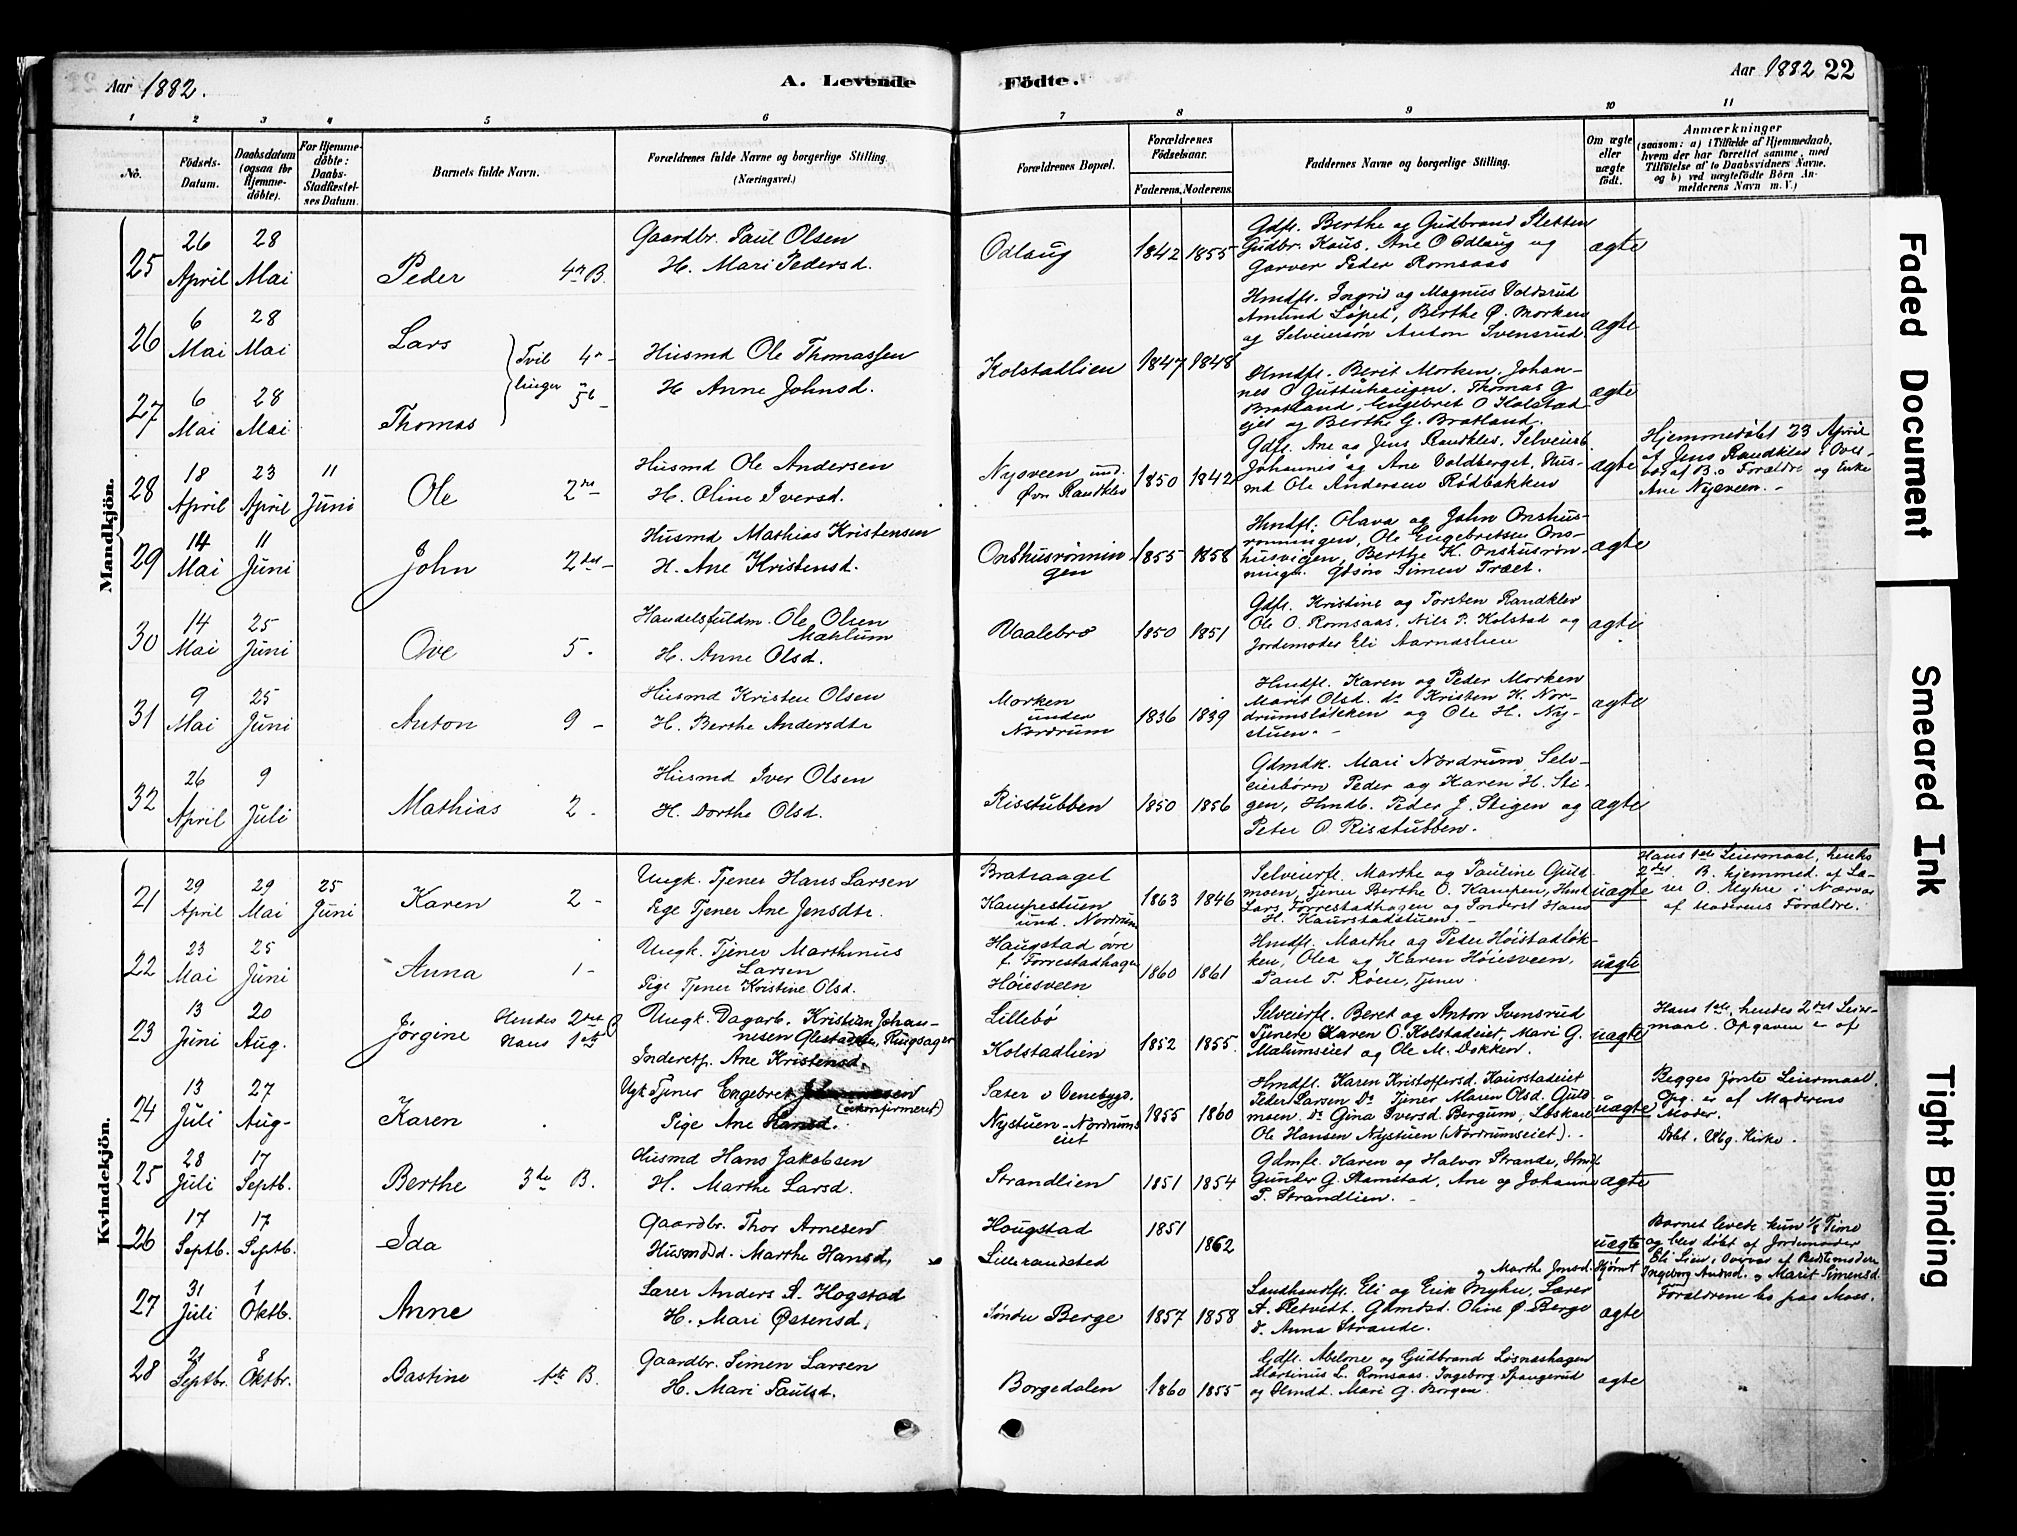 Aar 1882.
A. Levende
Födte.
Aar 1882 22
1 2 3 4 5 6 7 8 9 10 11
No.
Födsels-Datum.
Daabsdatum (ogsaa for Hjemme-döbte).
For Hjemme-döbte: Daabs-Stadfæstel-ses Datum.
Barnets fulde Navn.
Forældrenes fulde Navne og borgerlige Stilling.
(Næringsvei.)
Forældrenes Bopæl.
Forældrenes Födselsaar.
Faderens. Moderens.
Faddernes Navne og borgerlige Stilling.
Om ægte eller uægte födt.
Anmærkninger
(saasom: a) i Tilfælde af Hjemmedaab,
hvem der har forrettet samme, med
Tilföielse af to Daabsvidners Navne,
og b) ved uægtefödte Börn An-
melderens Navn m. V.)
Mandkjön.
25 26 April 28 Mai Peder 4de B.
Gaardbr. Paul Olsen
H. Mari Pedersd.
Odlaug 1842 1855
Gdfl. Berthe og Gudbrand Sletten
Gudbr. Kaus, Ane O Odlaug og
Garver Peder Romsaas
ægte
26 6 Mai 28 Mai Lars
Tvil
linger
4 -
5 -
Husmd Ole Thomassen
H Anne Johnsd.
Kolstadlien 1847 1848
Hmdfl. Ingrid og Magnus Voldsrud
Amund Løpet, Berthe O. Morken
og Selveiersøn Anton Svensrud.
ægte
27 6 Mai 28 Mai Thomas
Hmdfl. Berit Morken, Johan-
nes O Guttuhaugen, Thomas G
Bratland, Engebret O Kolstad-
ejet og Berthe G. Bratland.
ægte
28 18 April 23 April 11 Juni Ole 2det
Husmd Ole Andersen
H. Oline Iversd.
Nysveen und.
Øvr Randklev 1850 1842
Gdfl. Ane og Jens Randklev, Selveierf.
Johannes og Ane Voldberget, Hus-
md Ole Andersen Rødbakken
ægte
Hjemmedøbt 23 April
af Jens Randklev i Over-
vær af B.s Forældre og Enke
Ane Nysveen. -
29 14 Mai 11 Juni John 2det -
Husmd Mathias Kristensen
H. Ane Kristensd.
Onshusrønnin
gen 1855 1858
Hmdfl. Olava og John Onshus-
rønningen, Ole Engebretsen Ons-
husvigen, Berthe K. Onshusrøn-
ningen Gdsøn Simen Træet.
ægte
30 14 Mai 25 Juni Ove 5 -
Handelsfuldm. Ole Olsen
Mæhlum
H. Anne Olsd.
Vaalebro 1850 1851
Gdfl. Kristine og Torsten Randklev
Ole O. Romsaas, Nils P. Kolstad og
Jordemoder Eli Aarnæslien
ægte
31 9 Mai 25 Juni Anton 9 -
Husmd Kristen Olsen
H. Berthe Andersdtr
Morken
under
Nordrum 1836 1839
Hmdfl. Karen og Peder Morken
Marit Olsd. do Kristen K. Nor-
drumsløkken og Ole H. Ny-
stuen. -
ægte
32 26 April 9 Juli Mathias 2 -
Husmd Iver Olsen
H. Dorthe Olsd.
Risstubben 1850 1856
Gdmdk. Mari Nordrum, Selv-
eierbørn Peder og Karen H. Sti-
gen, Hmdb. Peder J. Stigen og
Peter O. Risstubben.
ægte
Kvindekjön.
21 29 April 29 Mai 25 Juni Karen 2 -
Ungk. Tjener Hans Larsen
Pige Tjener Ane Jensdtr.
Bratsaaget
Kampestuen
und. Nordrum 1863 1846
Selveierfl. Marthe og Pauline Guld-
moen, Tjener Berthe O. Kampen, Hmd
Lars Forrestadhagen og Inderst Hans
H. Kaurstadstuen. -
uægte
Hans 1ste Leiermaal, hendes
2det B. hjemmed. af La-
rer O. Myhre i Nærvær
af Moderens Forældre.
22 23 Mai 25 Juni Anna 1 -
Ungk. Tjener Marthinus
Larsen
Pige Tjener Kristine Olsd.
Haugstad øvre
f. Forrestadhagen
Høiesveen 1860 1861
Hmdfl. Marthe og Peder Høistadløk-
ken, Olea og Karen Høiesveen,
Paul T. Røen, Tjener
uægte
23 13 Juni 20 Aug. Jørgine
Hendes 2det
Hans 1ste
Ungk. Dagarb. Kristian Johan-
nesen, Ringsager
Inderstp. Ane Kristensd.
Lillebø
Kolstadlien 1852 1855
Selveierfl. Beret og Anton Svensrud
Tjenere Karen O. Kolstadeiet, Mari G.
Mælumseiet og Ole M. Dokken.
uægte
Hans 1ste, hendes 2det Leier-
maal. Opgaven er af
24 13 Juli 27 Aug- Karen
Ugk Tjener Engebret
(ukonfirmeret)
Pige Ane Hansd.
Sæter i Venebygd.
Nystuen-Nordrums
eiet 1855 1860
Hmdfl. Karen Kristoffersd. Kaurstadeiet
Peder Larsen Do Tjener Maren Olsd. Guld
moen. Do Gina Iversd. Bergum, Løskarl
Ole Hansen Nystuen (Nordrumseiet). -
uægte
Begges første Leiermaal.
Opg. er af Moderens
Moder.
Døbt i Vbg. Kirke.
25 28 Juli 17 Septb. Berthe 3de B.
Husmd Hans Jakobsen
H. Marthe Larsd.
Strandlien 1851 1854
Gdmfl. Karen og Halvor Strande, Hmdf
Gunder G. Stamstad, Ane og Johanne
P. Strandlien. -
ægte
26 17 Septb. 17 Septb. Ida
Gaardbr. Thor Arnesen
Husmdsd. Marthe Hansd.
Hougstad
Lillerandsted 1851
1862
uægte
Barnet levede kun 1/2 Time
og blev døbt af Jordemoder
Eli Lien i Overvær af
Ingeborg Andsd. og Marit Simensd.
Forældrene bo paa Moes.
27 31 Juli 1 Oktb. Anne
Lærer Anders A. Hogstad
H. Mari Østensd.
Søndre Berge 1857 1858
og Marthe Jonsd.
Landhandlfl. Eli og Erik Myhre, Lærer
A. Retvedt. Gdmdsd. Oline Ø. Berge
d. Anna Strande.
ægte
28 21 Septbr. 8 Oktbr. Bastine 1ste B.
Gaardbr. Simen Larsen
H. Mari Paulsd.
Borgedalen 1860 1855
Gdfl. Abelone og Gudbrand Løsnæshagen
Martinus L. Romsaas. Ingeborg Spangerud
og Hmdd. Mari G. Borgen.
ægte
Faded Document
Smeared Ink
Tight Binding